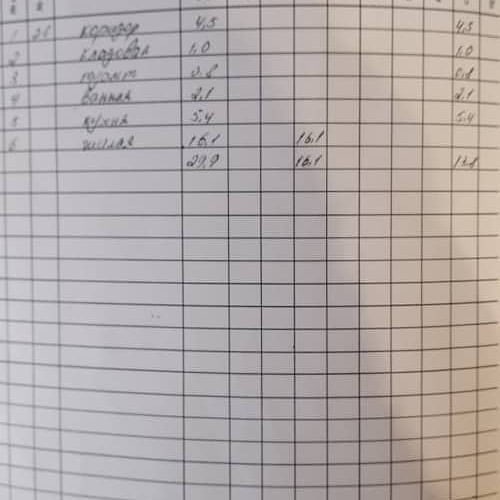 1 28 коридор 4,5 4,5
2 кладовая 1,0 1,0
3 туалет 0,8 0,8
4 ванная 2,1 2,1
5 кухня 5,4 5,4
6 жилая 16,1 16,1
29,9 16,1 13,8